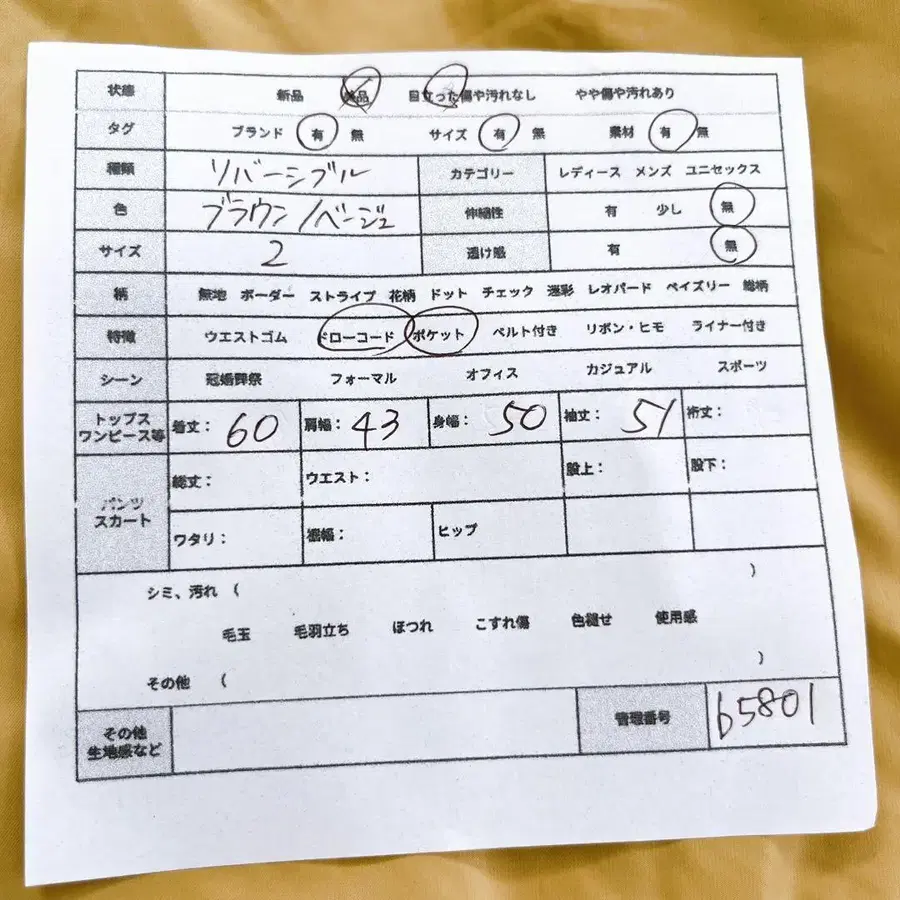 状態 新品 美品 目立った傷や汚れなし やや傷や汚れあり
タグ ブランド 有 無 サイズ 有 無 素材 有 無
種類 リバーシブル カテゴリー レディース メンズ ユニセックス
色 ブラウン/ベージュ 伸縮性 有 少し 無
サイズ 2 透け感 有 無
柄 無地 ボーダー ストライプ 花柄 ドット チェック 迷彩 レオパード ペイズリー 総柄
特徴 ウエストゴム ドローコード ポケット ベルト付き リボン・ヒモ ライナー付き
シーン 冠婚葬祭 フォーマル オフィス カジュアル スポーツ
トップス
ワンピース等 着丈: 60 肩幅: 43 身幅: 50 袖丈: 51 裄丈:
パンツ
スカート 総丈: ウエスト: 股上: 股下:
ワタリ: 裾幅: ヒップ
シミ、汚れ ( )
毛玉 毛羽立ち ほつれ こすれ傷 色褪せ 使用感
その他 ( )
その他
生地感など 管理番号 b5801